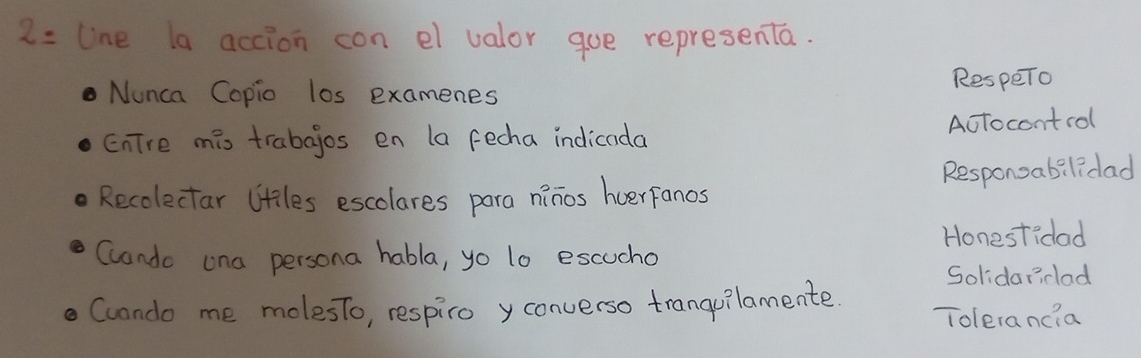 2= Une la acción con el valor que representa.
• Nunca Copio los examenes
• Entre mis trabajos en la fecha indicada
• Recolectar Útiles escolares para niños huerfanos
• Cuando una persona habla, yo lo escucho
• Cuando me molesto, respiro y converso tranquilamente.
Respeto
Autocontrol
Responsabilidad
Honestidad
Solidaridad
Tolerancia